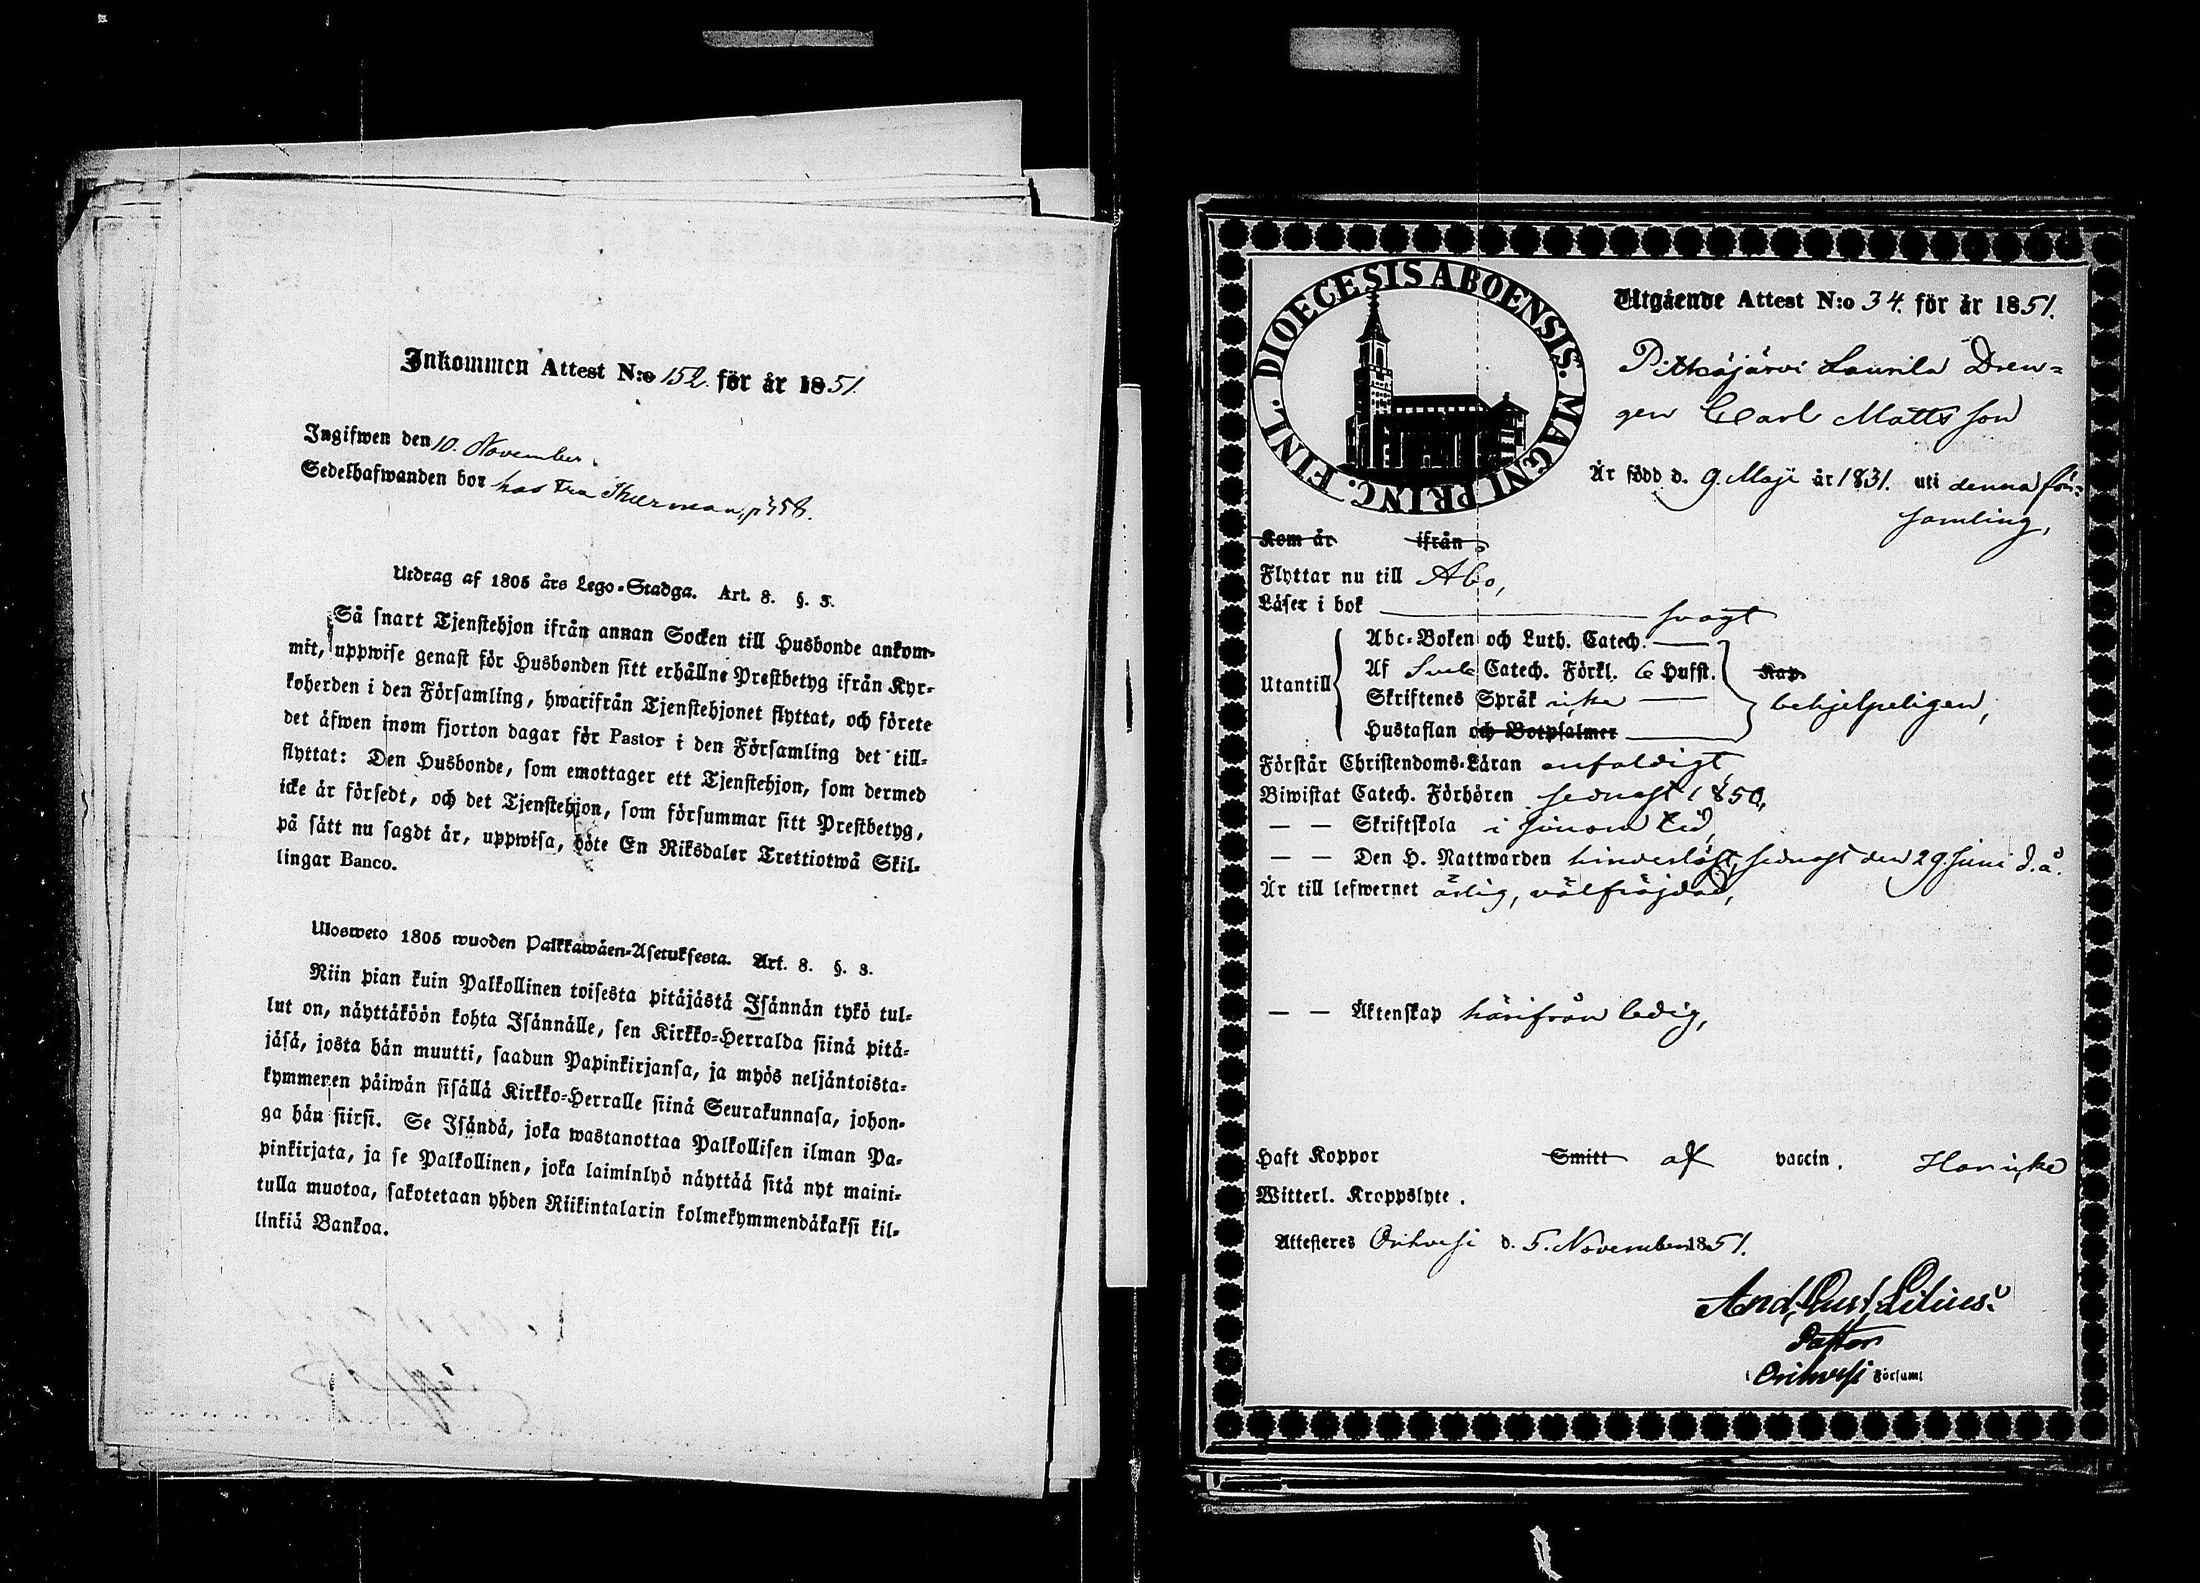 Inkommen Attest N:o 152. för år 1851.
Ingifwen den 10. November.
Sedelhafwanden bor hos Fru Thurman, p 758.
Utdrag af 1805 års Lego-Stadga. Art. 8. §. 3.
Så snart Tjenstehjon ifrån annan Socken till Husbonde ankom-
mit, uppwise genast för Husbonden sitt erhållne Prestbetyg ifrån Kyr-
koherden i den Församling, hwarifrån Tjenstehjonet flyttat, och förete
det äfwen inom fjorton dagar för Pastor i den Församling det till-
flyttat: Den Husbonde, som emottager ett Tjenstehjon, som dermed
icke är försedt, och det Tjenstehjon, som försummar sitt Prestbetyg,
på sätt nu sagdt är, uppwisa, böte En Riksdaler Trettiotwå Skil-
lingar Banco.
Ulosweto 1805 wuoden Palkkawäen-Asetuksesta. Art. 8. §. 3.
Niin pian kuin Palkollinen toisesta pitäjästä Isännän tykö tul-
lut on, näyttäköön kohta Isännälle, sen Kirkko-Herralda siinä pitä-
jäsä, josta hän muutti, saadun Papinkirjansa, ja myös neljäntoista-
kymmenen päiwän sisällä Kirkko-Herralle siinä Seurakunnasa, johon-
ga hän siirsi. Se Isändä, joka wastanottaa Palkollisen ilman Pa-
pinkirjata, ja se Palkollinen, joka laiminlyö näyttää sitä nyt maini-
tulla muotoa, sakotetaan yhden Riikintalarin kolmekymmendäkaksi kil-
linkiä Bankoa.
DIOECESIS ABOENSIS. MAGNI PRINC. FINL.
Utgående Attest N:o 34. för år 1851.
Pitkäjärvi Laurila Dren-
gen Carl Mattsson
Är född d. 9 Maji år 1831. uti denna för-
samling,
Kom år ifrån
Flyttar nu till Åbo,
Läser i bok svagt
Utantill
Abc-Boken och Luth. Catech.
Af Sveb. Catech. Förkl. 6 Hufst.
Skriftenes Språk icke
Hustaflan och Botpsalmer
Kap.
behjelpeligen,
Förstår Christendoms-Läran enfaldigt,
Biwistat Catech. Förhören sednast 1850,
— — Skriftskola i sinom tid,
— — Den H. Nattwarden hinderlöst, sednast den 29 Juni d.å.
Är till lefwernet ärlig, välfräjdad,
— — Äktenskap härifrån ledig,
Haft Koppor Smitt af vaccin. Har icke
Witterl. Kroppslyte.
Attesteres Orihvesi d. 5. November 1851.
And. Gust. Lilius.
Pastor
i Orihvesi Församl